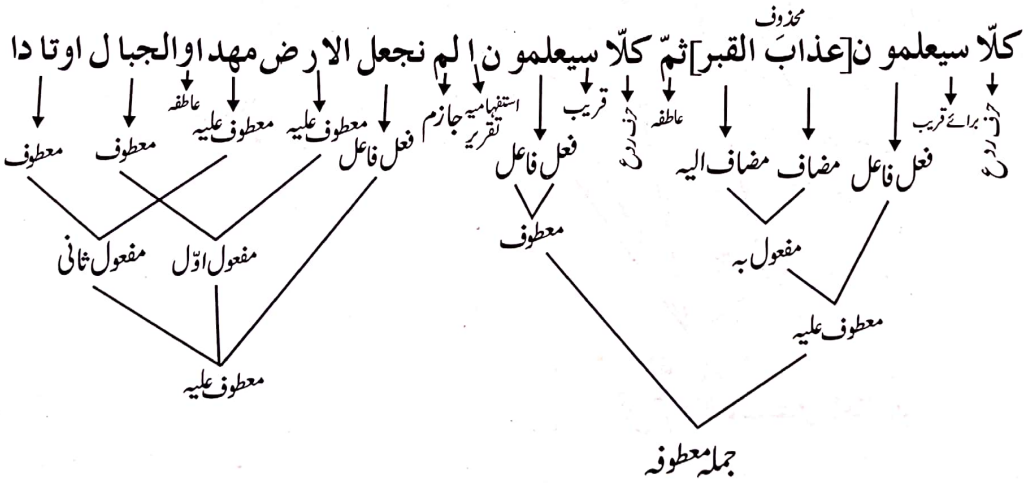 محذوف
كلّا سيعلمو ن [عذابَ القبر] ثمّ كلّا سيعلمو ن ا لم نجعل الا ر ض مهدا و الجبا ل او تا دا
حرف ردع برائے قریب فعل فاعل مضاف مضاف الیہ عاطفہ حرف ردع قریب فعل فاعل استفہامیہ تقریر جازم فعل فاعل معطوف علیہ معطوف علیہ عاطفہ معطوف معطوف
معطوف
مفعول بہ مفعول اوّل مفعول ثانی
معطوف علیہ
معطوف علیہ
جملہ معطوفہ